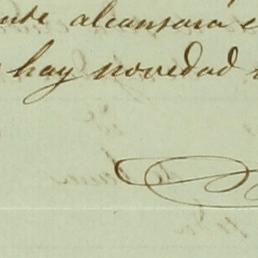 ente alcansara e
hay novedad